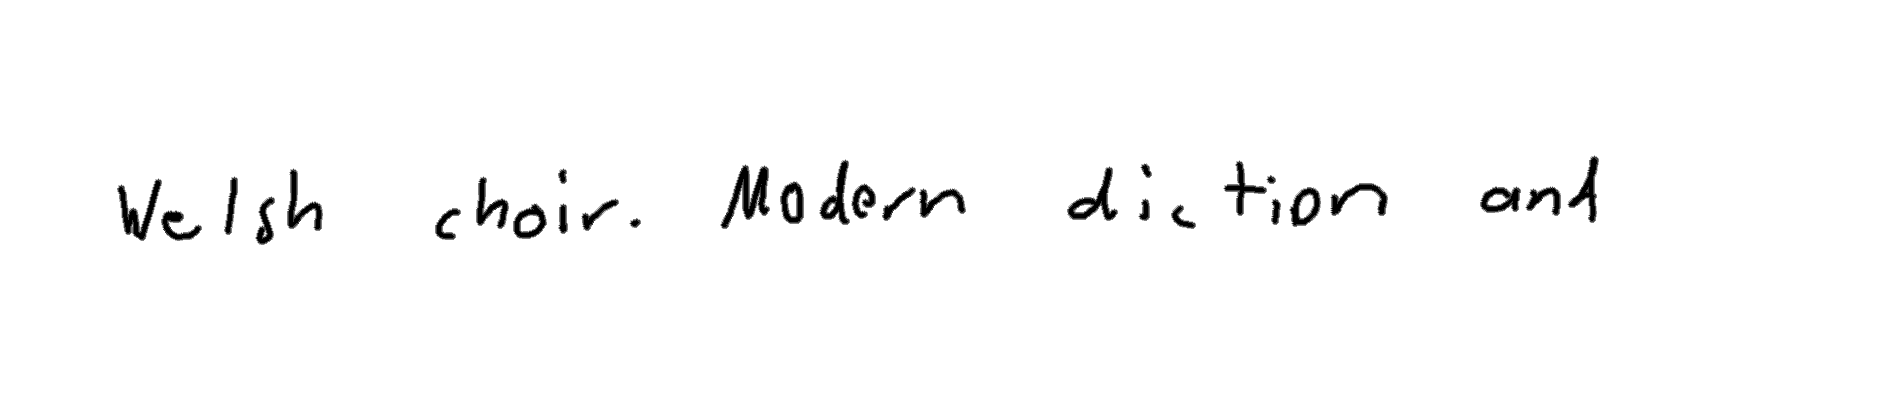 Welsh choir. Modern diction and